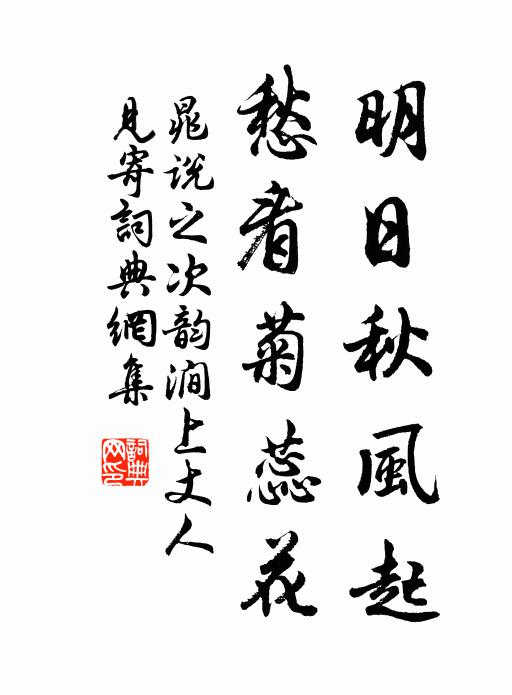 明日秋風起
愁看菊蕊花
晁説之次韵澗上丈人
見寄詞典網集
詞典
网印